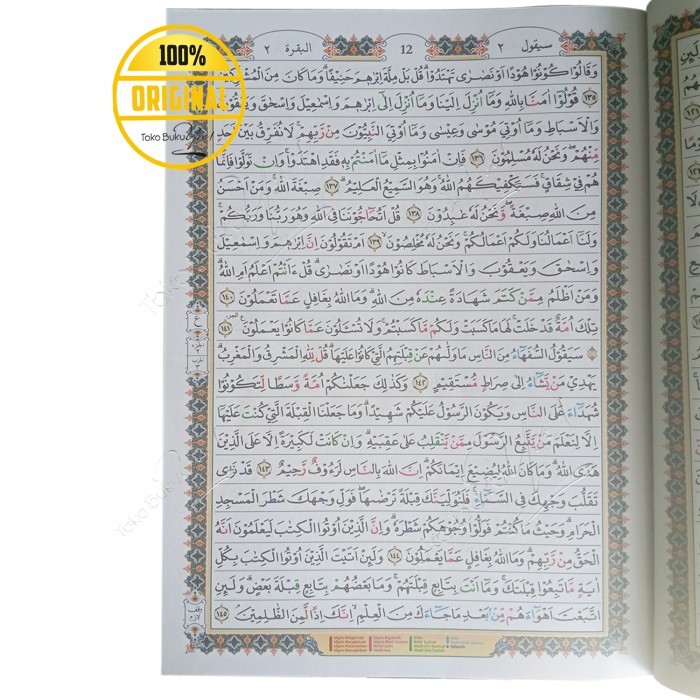 100%
ORIGINAL
Toko Buku
سيقول ٢
12
البقرة ٢
وَقَالُوْا كُوْنُوْا هُوْدًا اَوْ نَصٰرٰى تَهْتَدُوْاۗ قُلْ بَلْ مِلَّةَ اِبْرٰهٖمَ حَنِيْفًاۗ وَمَا كَانَ مِنَ
١٣٥ قُوْلُوْٓا اٰمَنَّا بِاللّٰهِ وَمَآ اُنْزِلَ اِلَيْنَا وَمَآ اُنْزِلَ اِلٰٓى اِبْرٰهٖمَ وَاِسْمٰعِيْلَ وَاِسْحٰقَ وَيَعْقُوْبَ
وَالْاَسْبَاطِ وَمَآ اُوْتِيَ مُوْسٰى وَعِيْسٰى وَمَآ اُوْتِيَ النَّبِيُّوْنَ مِنْ رَّبِّهِمْۚ لَا نُفَرِّقُ بَيْنَ اَحَدٍ
مِّنْهُمْۖ وَنَحْنُ لَهٗ مُسْلِمُوْنَ ١٣٦ فَاِنْ اٰمَنُوْا بِمِثْلِ مَآ اٰمَنْتُمْ بِهٖ فَقَدِ اهْتَدَوْاۚ وَاِنْ تَوَلَّوْا فَاِنَّمَا
هُمْ فِيْ شِقَاقٍۚ فَسَيَكْفِيْكَهُمُ اللّٰهُۚ وَهُوَ السَّمِيْعُ الْعَلِيْمُۗ ١٣٧ صِبْغَةَ اللّٰهِۚ وَمَنْ اَحْسَنُ
مِنَ اللّٰهِ صِبْغَةًۖ وَّنَحْنُ لَهٗ عٰبِدُوْنَ ١٣٨ قُلْ اَتُحَاۤجُّوْنَنَا فِى اللّٰهِ وَهُوَ رَبُّنَا وَرَبُّكُمْۚ
وَلَنَآ اَعْمَالُنَا وَلَكُمْ اَعْمَالُكُمْۚ وَنَحْنُ لَهٗ مُخْلِصُوْنَۙ ١٣٩ اَمْ تَقُوْلُوْنَ اِنَّ اِبْرٰهٖمَ وَاِسْمٰعِيْلَ
وَاِسْحٰقَ وَيَعْقُوْبَ وَالْاَسْبَاطَ كَانُوْا هُوْدًا اَوْ نَصٰرٰىۗ قُلْ ءَاَنْتُمْ اَعْلَمُ اَمِ اللّٰهُۗ
وَمَنْ اَظْلَمُ مِمَّنْ كَتَمَ شَهَادَةً عِنْدَهٗ مِنَ اللّٰهِۗ وَمَا اللّٰهُ بِغَافِلٍ عَمَّا تَعْمَلُوْنَ ١٤٠
تِلْكَ اُمَّةٌ قَدْ خَلَتْۚ لَهَا مَا كَسَبَتْ وَلَكُمْ مَّا كَسَبْتُمْۚ وَلَا تُسْـَٔلُوْنَ عَمَّا كَانُوْا يَعْمَلُوْنَ ١٤١
سَيَقُوْلُ السُّفَهَاۤءُ مِنَ النَّاسِ مَا وَلّٰىهُمْ عَنْ قِبْلَتِهِمُ الَّتِيْ كَانُوْا عَلَيْهَاۗ قُلْ لِّلّٰهِ الْمَشْرِقُ وَالْمَغْرِبُۗ
يَهْدِيْ مَنْ يَّشَاۤءُ اِلٰى صِرَاطٍ مُّسْتَقِيْمٍ ١٤٢ وَكَذٰلِكَ جَعَلْنٰكُمْ اُمَّةً وَّسَطًا لِّتَكُوْنُوْا
شُهَدَاۤءَ عَلَى النَّاسِ وَيَكُوْنَ الرَّسُوْلُ عَلَيْكُمْ شَهِيْدًاۗ وَمَا جَعَلْنَا الْقِبْلَةَ الَّتِيْ كُنْتَ عَلَيْهَآ
اِلَّا لِنَعْلَمَ مَنْ يَّتَّبِعُ الرَّسُوْلَ مِمَّنْ يَّنْقَلِبُ عَلٰى عَقِبَيْهِۗ وَاِنْ كَانَتْ لَكَبِيْرَةً اِلَّا عَلَى الَّذِيْنَ
هَدَى اللّٰهُۗ وَمَا كَانَ اللّٰهُ لِيُضِيْعَ اِيْمَانَكُمْۗ اِنَّ اللّٰهَ بِالنَّاسِ لَرَءُوْفٌ رَّحِيْمٌ ١٤٣ قَدْ نَرٰى
تَقَلُّبَ وَجْهِكَ فِى السَّمَاۤءِۚ فَلَنُوَلِّيَنَّكَ قِبْلَةً تَرْضٰىهَاۖ فَوَلِّ وَجْهَكَ شَطْرَ الْمَسْجِدِ
الْحَرَامِۗ وَحَيْثُ مَا كُنْتُمْ فَوَلُّوْا وُجُوْهَكُمْ شَطْرَهٗۗ وَاِنَّ الَّذِيْنَ اُوْتُوا الْكِتٰبَ لَيَعْلَمُوْنَ اَنَّهُ
الْحَقُّ مِنْ رَّبِّهِمْۗ وَمَا اللّٰهُ بِغَافِلٍ عَمَّا يَعْمَلُوْنَ ١٤٤ وَلَىِٕنْ اَتَيْتَ الَّذِيْنَ اُوْتُوا الْكِتٰبَ بِكُلِّ
اٰيَةٍ مَّا تَبِعُوْا قِبْلَتَكَۚ وَمَآ اَنْتَ بِتَابِعٍ قِبْلَتَهُمْۚ وَمَا بَعْضُهُمْ بِتَابِعٍ قِبْلَةَ بَعْضٍۗ وَلَىِٕنِ
اتَّبَعْتَ اَهْوَاۤءَهُمْ مِّنْۢ بَعْدِ مَا جَاۤءَكَ مِنَ الْعِلْمِۙ اِنَّكَ اِذًا لَّمِنَ الظّٰلِمِيْنَ ١٤٥